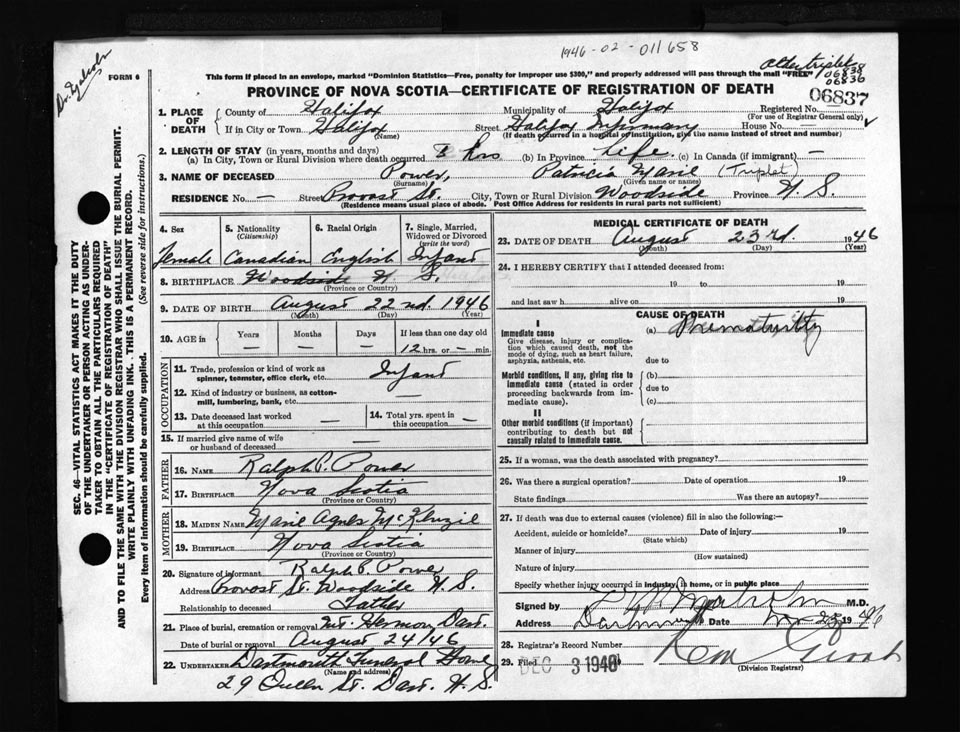 1946-02-011658
Dr. Malcolm
FORM 6
Other triplet
06838
06836
This form if placed in an envelope, marked "Dominion Statistics—Free, penalty for improper use $300," and properly addressed will pass through the mail "FREE"
06837
PROVINCE OF NOVA SCOTIA—CERTIFICATE OF REGISTRATION OF DEATH
1. PLACE OF DEATH County of Halifax Municipality of Halifax Registered No.
(For use of Registrar General only)
If in City or Town Halifax Street Halifax Infirmary House No. —
(Name) (If death occurred in a hospital or institution, give the name instead of street and number)
2. LENGTH OF STAY (in years, months and days)
(a) In City, Town or Rural Division where death occurred 8 hrs (b) In Province Life. (c) In Canada (if immigrant) —
3. NAME OF DECEASED Power, Patricia Marie (Triplet)
(Surname) (Given name or names)
RESIDENCE No. — Street Provost St. City, Town or Rural Division Woodside Province N. S.
(Residence means usual place of abode. Post Office Address for residents in rural parts not sufficient)
SEC. 46—VITAL STATISTICS ACT MAKES IT THE DUTY
OF THE UNDERTAKER OR PERSON ACTING AS UNDER-
TAKER TO OBTAIN ALL THE PARTICULARS REQUIRED
IN THE "CERTIFICATE OF REGISTRATION OF DEATH"
AND TO FILE THE SAME WITH THE DIVISION REGISTRAR WHO SHALL ISSUE THE BURIAL PERMIT.
WRITE PLAINLY WITH UNFADING INK. THIS IS A PERMANENT RECORD.
Every item of information should be carefully supplied. (See reverse side for instructions.)
4. Sex 5. Nationality (Citizenship) 6. Racial Origin 7. Single, Married, Widowed or Divorced (write the word)
Female Canadian English Infant
8. BIRTHPLACE Woodside N. S.
(Province or Country)
9. DATE OF BIRTH August 22nd. 1946
(Month) (Day) (Year)
10. AGE in Years Months Days If less than one day old
— — — 12 hrs. or — min.
OCCUPATION
11. Trade, profession or kind of work as spinner, teamster, office clerk, etc. Infant
12. Kind of industry or business, as cotton-mill, lumbering, bank, etc. —
13. Date deceased last worked at this occupation — 14. Total yrs. spent in this occupation —
15. If married give name of wife or husband of deceased
FATHER
16. NAME Ralph P. Power
17. BIRTHPLACE Nova Scotia
(Province or Country)
MOTHER
18. MAIDEN NAME Marie Agnes McKenzie
19. BIRTHPLACE Nova Scotia
(Province or Country)
20. Signature of informant Ralph P. Power
Address Provost St. Woodside N. S.
Relationship to deceased Father
21. Place of burial, cremation or removal Mt. Hermon Dart.
Date of burial or removal August 24/46
22. UNDERTAKER Dartmouth Funeral Home
(Name and address)
29 Queen St. Dart. N. S.
MEDICAL CERTIFICATE OF DEATH
23. DATE OF DEATH August 23rd. 1946
(Month) (Day) (Year)
24. I HEREBY CERTIFY that I attended deceased from:
19 to 19
and last saw h alive on 19
CAUSE OF DEATH
I
Immediate cause (a) Prematurity
Give disease, injury or complica-
tion which caused death, not the
mode of dying, such as heart failure,
asphyxia, asthenia, etc. due to
Morbid conditions, if any, giving rise to (b)
immediate cause (stated in order due to
proceeding backwards from im-
mediate cause). (c)
II
Other morbid conditions (if important)
contributing to death but not
causally related to immediate cause.
25. If a woman, was the death associated with pregnancy?
26. Was there a surgical operation? Date of operation 19
State findings Was there an autopsy?
27. If death was due to external causes (violence) fill in also the following:—
Accident, suicide or homicide? Date of injury 19
(State which)
Manner of injury
(How sustained)
Nature of injury
Specify whether injury occurred in industry, in home, or in public place
Signed by Malcolm M.D.
Address Dartmouth Date 23 1946
28. Registrar's Record Number
29. Filed DEC 3 1946
(Division Registrar)